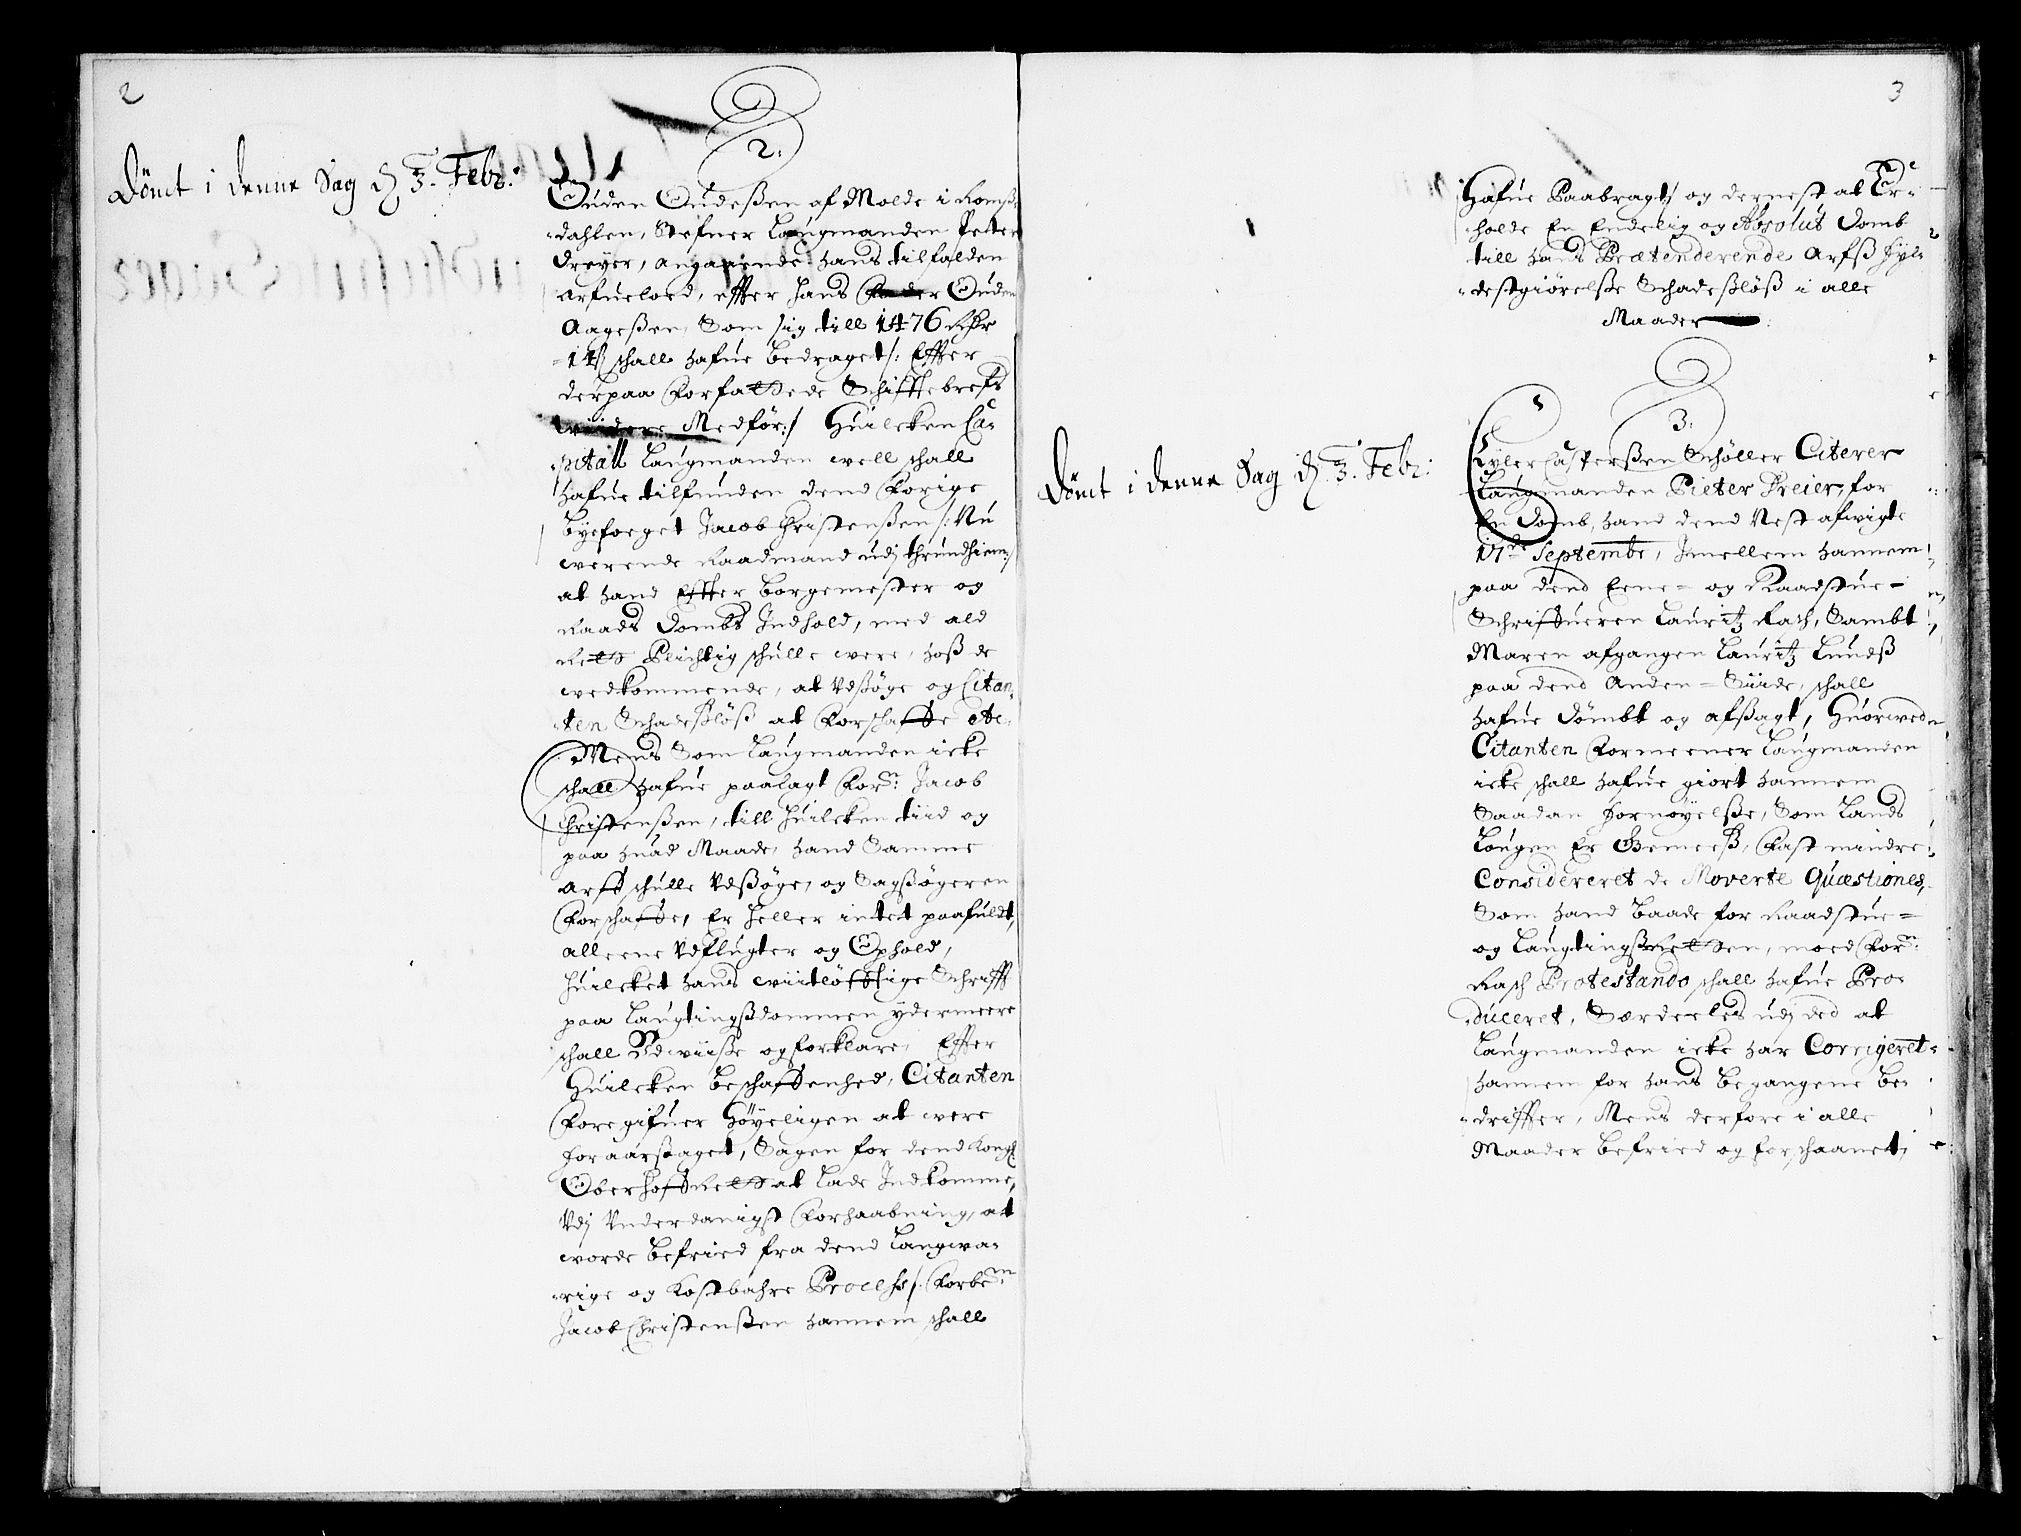 2
2:
Dömt i denne Sag d. 3. Febr:
Ouden Oudeßen af Molde i Romß-
dahlen, Stefner Laugmanden Petter
Dreyer, angaaende hans tilfalden
Arfueloed, effter hans Fader Ouden
Aageßen, Som sig till 1476 Rdr
14 s schall hafue bedraget /: Effter
derpaa Forfattede Schifftebrefs
widere Medför :/ Huilcken Ca-
pitall Laugmanden well schall
hafue tilfunden dend Forige
byefoeget Jacob Christenßen /: Nu
werende Raadmand udj thrundhiem :/
at hand Effter borgemester og
Raads Dombs Indhold, med ald
Rett Plichtig schulle were, hoß de
wedkommende, at Udßøge og Citan-
ten Schadeßlöß at Forschaffe etc:
Mens Som Laugmanden icke
schall hafue paalagt For.ne Jacob
Christenßen, till huilcken tiid og
paa huad Maade, hand Samme
Arff schulle Udßøge, og Sagßøgeren
Forschaffe, Er heller intet paafuldt,
alleene Udflugter og Ophold,
huilcket hans wiitløfftige Schrifft
paa Laugtingßdommen ydermeere
schall Udwiiße og forklare, Effter
Huilcken beschaffenhed, Citanten
Foregifuer Høyeligen at were
foraarßaget, Sagen for dend Kongl
Oberhoffrett at lade Indkomme,
Udj Underdanigst Forhaabning, at
worde befried fra dend Langwa-
rige og Kostbahre Process /: Forbe.m
Jacob Christenßen hannem schall
3
Hafue Paabragt / og dernest at Er-
holde En Endelig og Absolut Domb
till hans Prætenderende Arfß fyl-
destgiørelße Schadeßlöß i alle
Maader
3:
Dömt i denne Sag d. 3. Febr:
Eyler Casperßen Schøller Citerer
Laugmanden Pieter Dreier, for
En Domb, hand dend Nest afwigte
17de Septembe, Imellem hannem
paa dend Eene- og Raadstue-
Schriffueren Lauritz Rasch, Sambt
Maren afgangen Lauritz Lundß
paa dend Anden- Siide, schall
hafue dömbt og afßagt, Huorwed
Citanten Formeener Laugmanden
icke schall hafue giort hannem
Saadan fornøyelße, Som Lands
Lougen Er Gemeeß, Fast mindre
Considereret de Moverte Quæstiones,
Som hand baade for Raadstue-
og Laugtingßretten, moed For.ne
Rasch Protestando schall hafue Pro-
duceret, Særdeeles udj ded at
Laugmanden icke har Corrigeret
hannem for hans begangene be-
driffter, Mens derfore i alle
Maader befried og forschaanet,